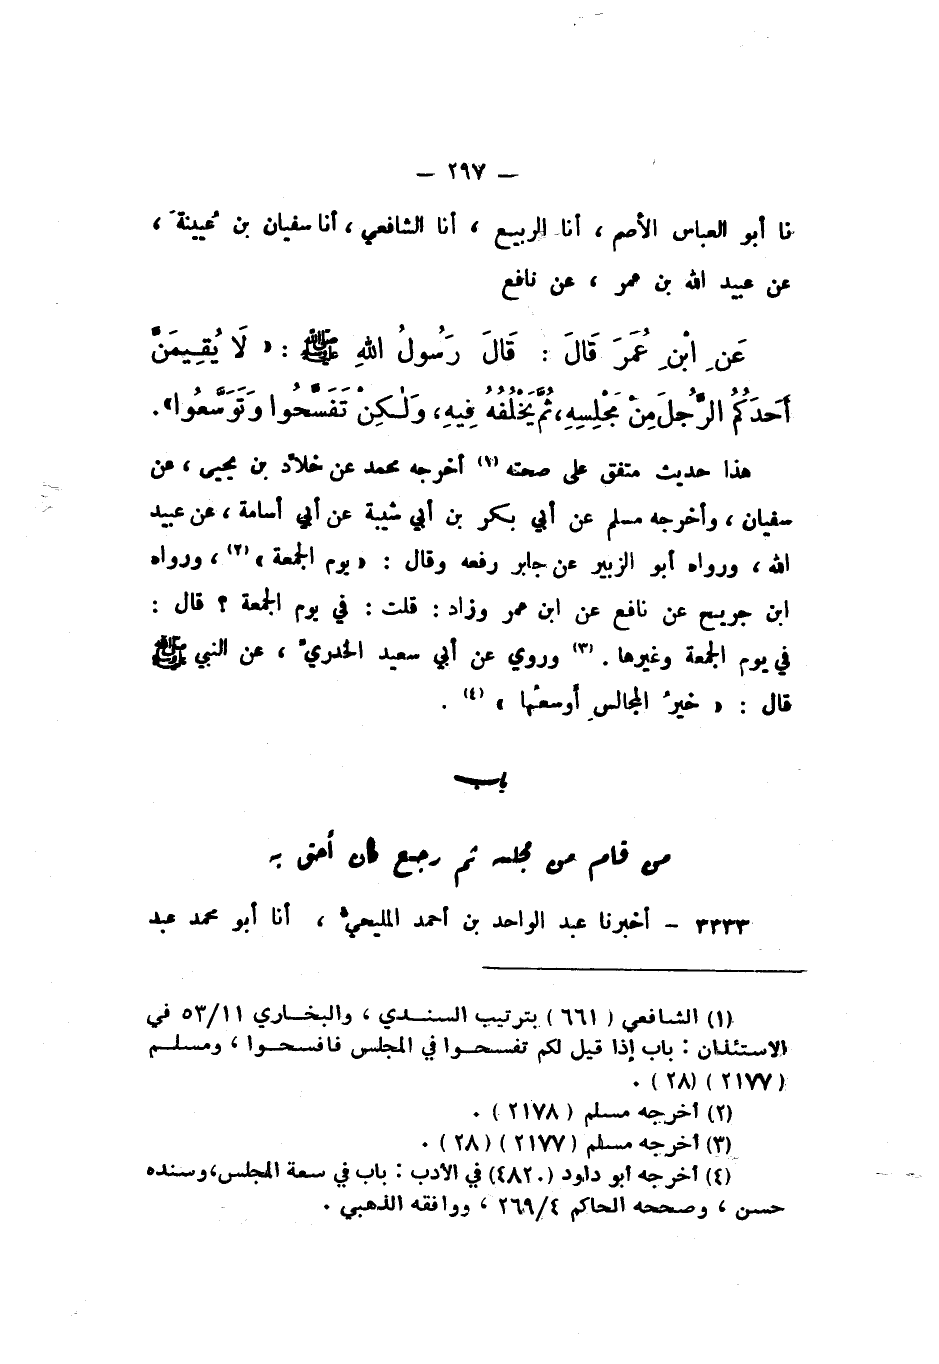 — ٢٩٧ —
نا أبو العباس الأصم ، أنا الربيع ، أنا الشافعي ، أنا سفيان بن عُيينة ،
عن عبيد الله بن عمر ، عن نافع
عَنِ ابْنِ عُمَرَ قَالَ : قَالَ رَسُولُ اللهِ ﷺ : « لَا يُقِيمَنَّ
أَحَدُكُمُ الرَّجُلَ مِنْ مَجْلِسِهِ ، ثُمَّ يَخْلُفُهُ فِيهِ ، وَلٰكِنْ تَفَسَّحُوا وَتَوَسَّعُوا » .
هذا حديث متفق على صحته (١) أخرجه محمد عن خلّاد بن يحيى ، عن
سفيان ، وأخرجه مسلم عن أبي بكر بن أبي شيبة عن أبي أسامة ، عن عبيد
الله ، ورواه أبو الزبير عن جابر رفعه وقال : « يوم الجمعة » (٢) ، ورواه
ابن جريج عن نافع عن ابن عمر وزاد : قلت : في يوم الجمعة ؟ قال :
في يوم الجمعة وغيرها . (٣) وروي عن أبي سعيد الخدريّ ، عن النبي ﷺ
قال : « خيرُ المجالسِ أوسعُها » (٤) .
باب
من قام من مجلسه ثم رجع كان أحق به
٣٣٣٣ – أخبرنا عبد الواحد بن أحمد المليحيّ ، أنا أبو محمد عبد
(١) الشافعي ( ٦٦١ ) بترتيب السندي ، والبخاري ٥٣/١١ في
الاستئذان : باب إذا قيل لكم تفسحوا في المجلس فافسحوا ، ومسلم
( ٢١٧٧ ) ( ٢٨ ) .
(٢) أخرجه مسلم ( ٢١٧٨ ) .
(٣) أخرجه مسلم ( ٢١٧٧ ) ( ٢٨ ) .
(٤) أخرجه أبو داود (٤٨٢٠) في الأدب : باب في سعة المجلس ، وسنده
حسن ، وصححه الحاكم ٢٦٩/٤ ، ووافقه الذهبي .